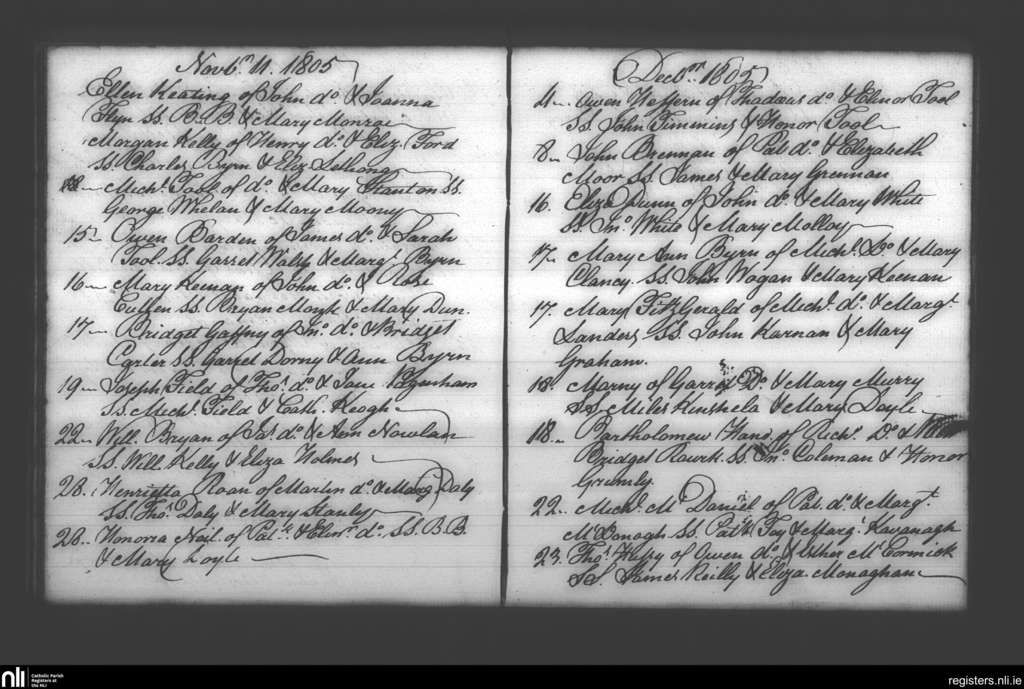 Novbr. 11. 1805
Ellen Keating of John do. & Joanna
Flyn SS. B.B. & Mary Monroe
Morgan Kelly of Henry do. & Eliz. Ford
SS. Charles Byrn & Eliz.
Michl. Tool of do. & Mary Stanton SS.
George Whelan & Mary Moony
15 Owen Barden of James do. & Sarah
Tool SS. Garret Walsh & Margt. Byrn
16 Mary Keenan of John do. & Rose
Cullen SS. Bryan & Mary Dun.
17 Bridget Gaffny of Jno. do. & Bridget
Carter SS. Garret Dorny & Ann Byrn
19 Joseph Field of Thos. do. & Jane
SS. Michl. Field & Cath. Keogh
22 Will. Bryan of Jas. do. & Ann Nowlan
SS. Will Kelly & Eliza Holmes
23. Henrietta Roan of Martin do. & Marg. Daly
SS. Thos. Daly & Mary Stanly
26. Honorra Neil of Patk. & Elinr. do. SS. B.B.
& Mary Coyle
Decbr. 1805
4 Owen Heffern of Thadaus do. & Elinor Tool
SS. John Timmins & Honor Tool
8 John Brennan of Pat do. & Elizabeth
Moor SS. James & Mary Grennan
16. Eliza Dunn of John do. & Mary White
SS. Jno. White & Mary Molloy
17. Mary Ann Byrn of Michl. Do. & Mary
Clancy SS. John Wogan & Mary Keenan
17. Mary FitzGerald of Michl. do. & Margt.
Landers SS. John Karnan & Mary
Graham.
18. of Garret Do. & Mary Murry
SS. Miles Kinshela & Mary Doyle
18. Bartholomew of Richd. Do. &
Bridget SS. Jno. Coleman & Honor
22 Michl. Mc. Daniel of Pat. do. & Margt.
McDonogh SS. Patk. Fay & Margt. Kavanagh
23. Thos. of Owen do. & Esther McCormick
SS. James Reilly & Eliza. Monaghan
nli Catholic Parish
Registers at
the NLI
registers.nli.ie